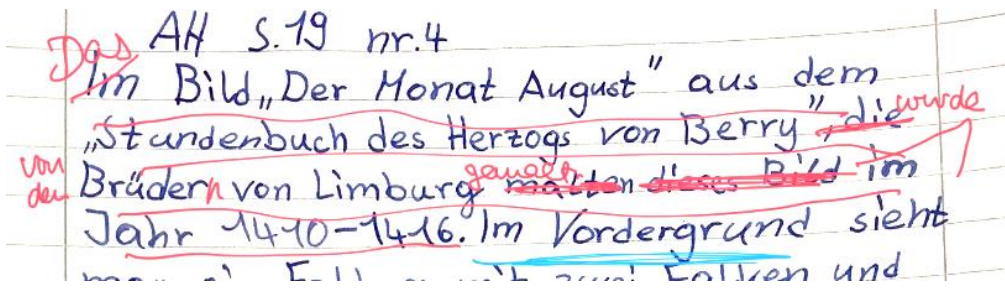 AH S.19 nr.4
Das Im Bild „Der Monat August" aus dem
„Stundenbuch des Herzogs von Berry", die wurde
von den Brüdern von Limburg gemalt malten dieses Bild im
Jahr 1410-1416. Im Vordergrund sieht
mit zwei Falken und